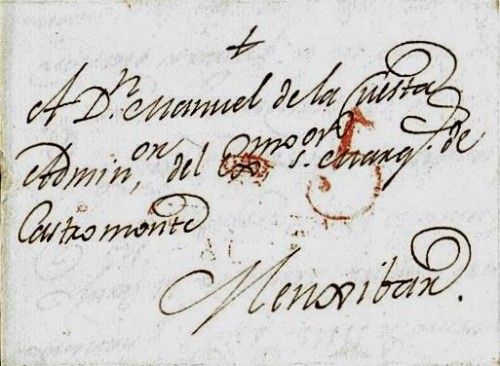 +
A D.n Manuel de la Cuesta
Admin.or del Exmo s.or Marq.s de
Castromonte
Menxibar.